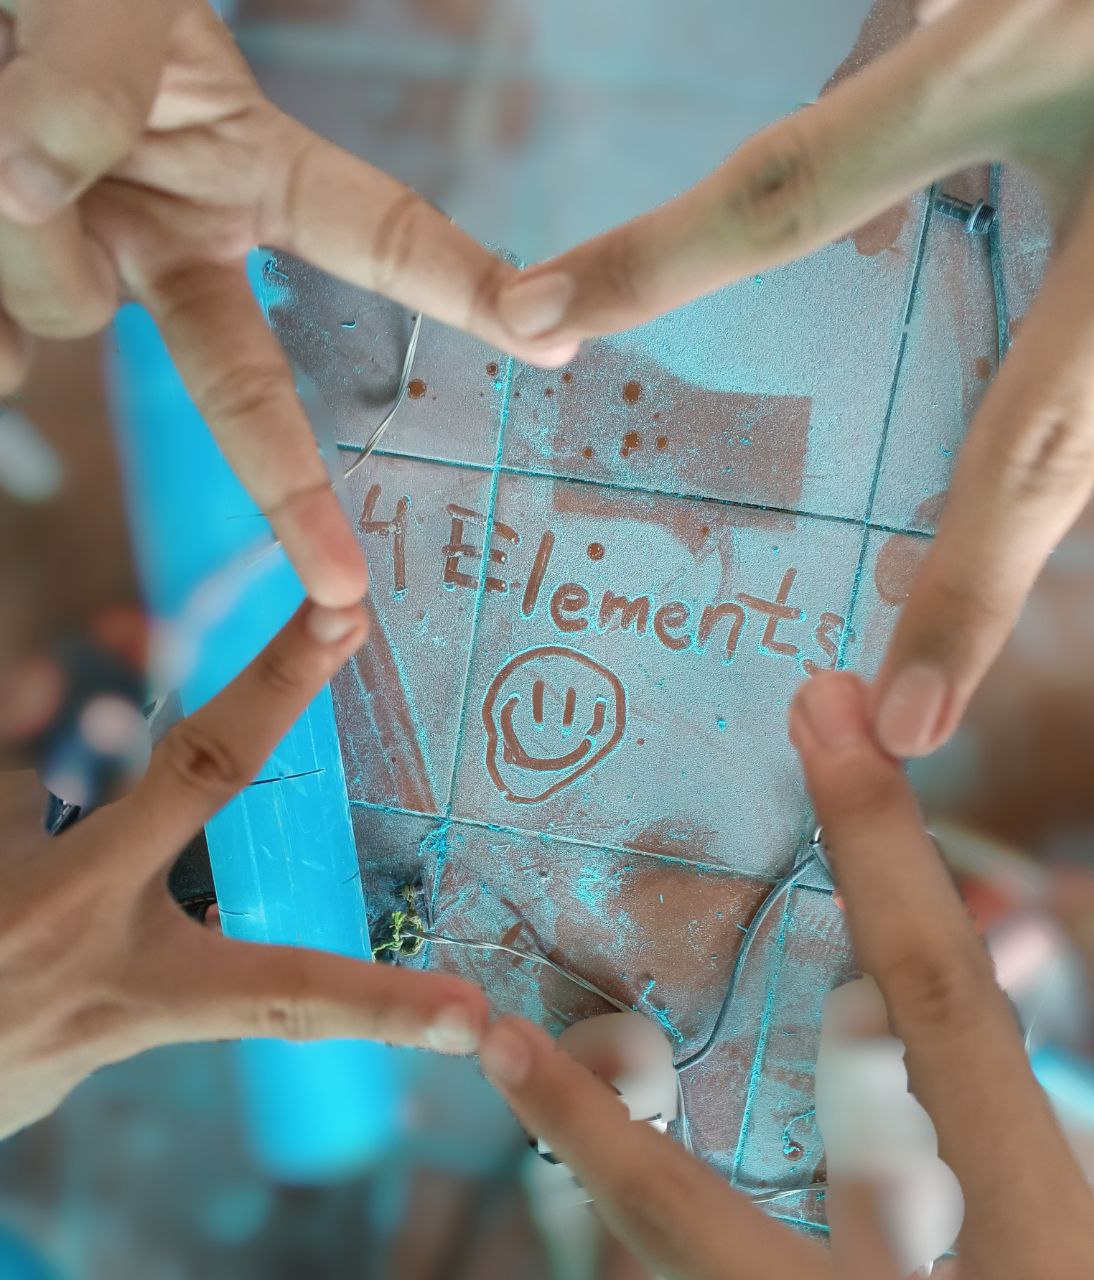 4 Elements